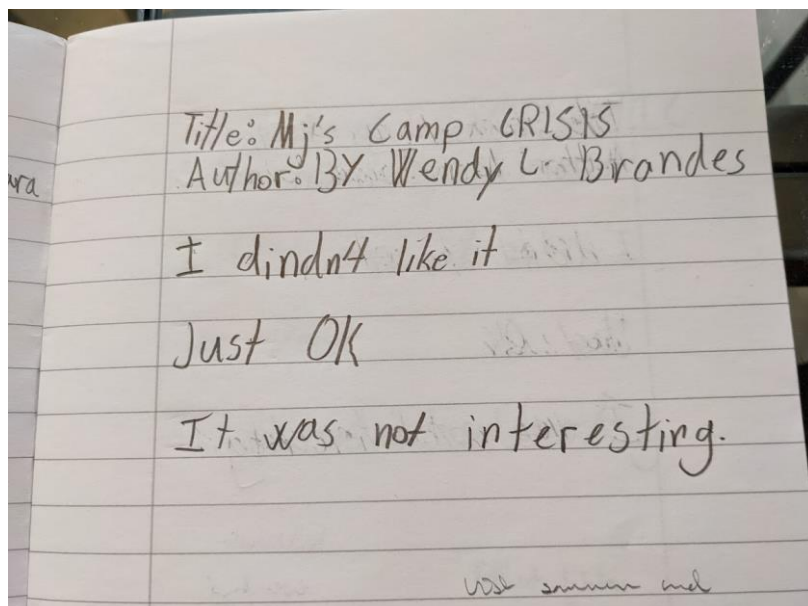 ara
Title: Mj's Camp CRISIS
Author: BY Wendy L. Brandes
I dindn4 like it
Just OK
It was not interesting.